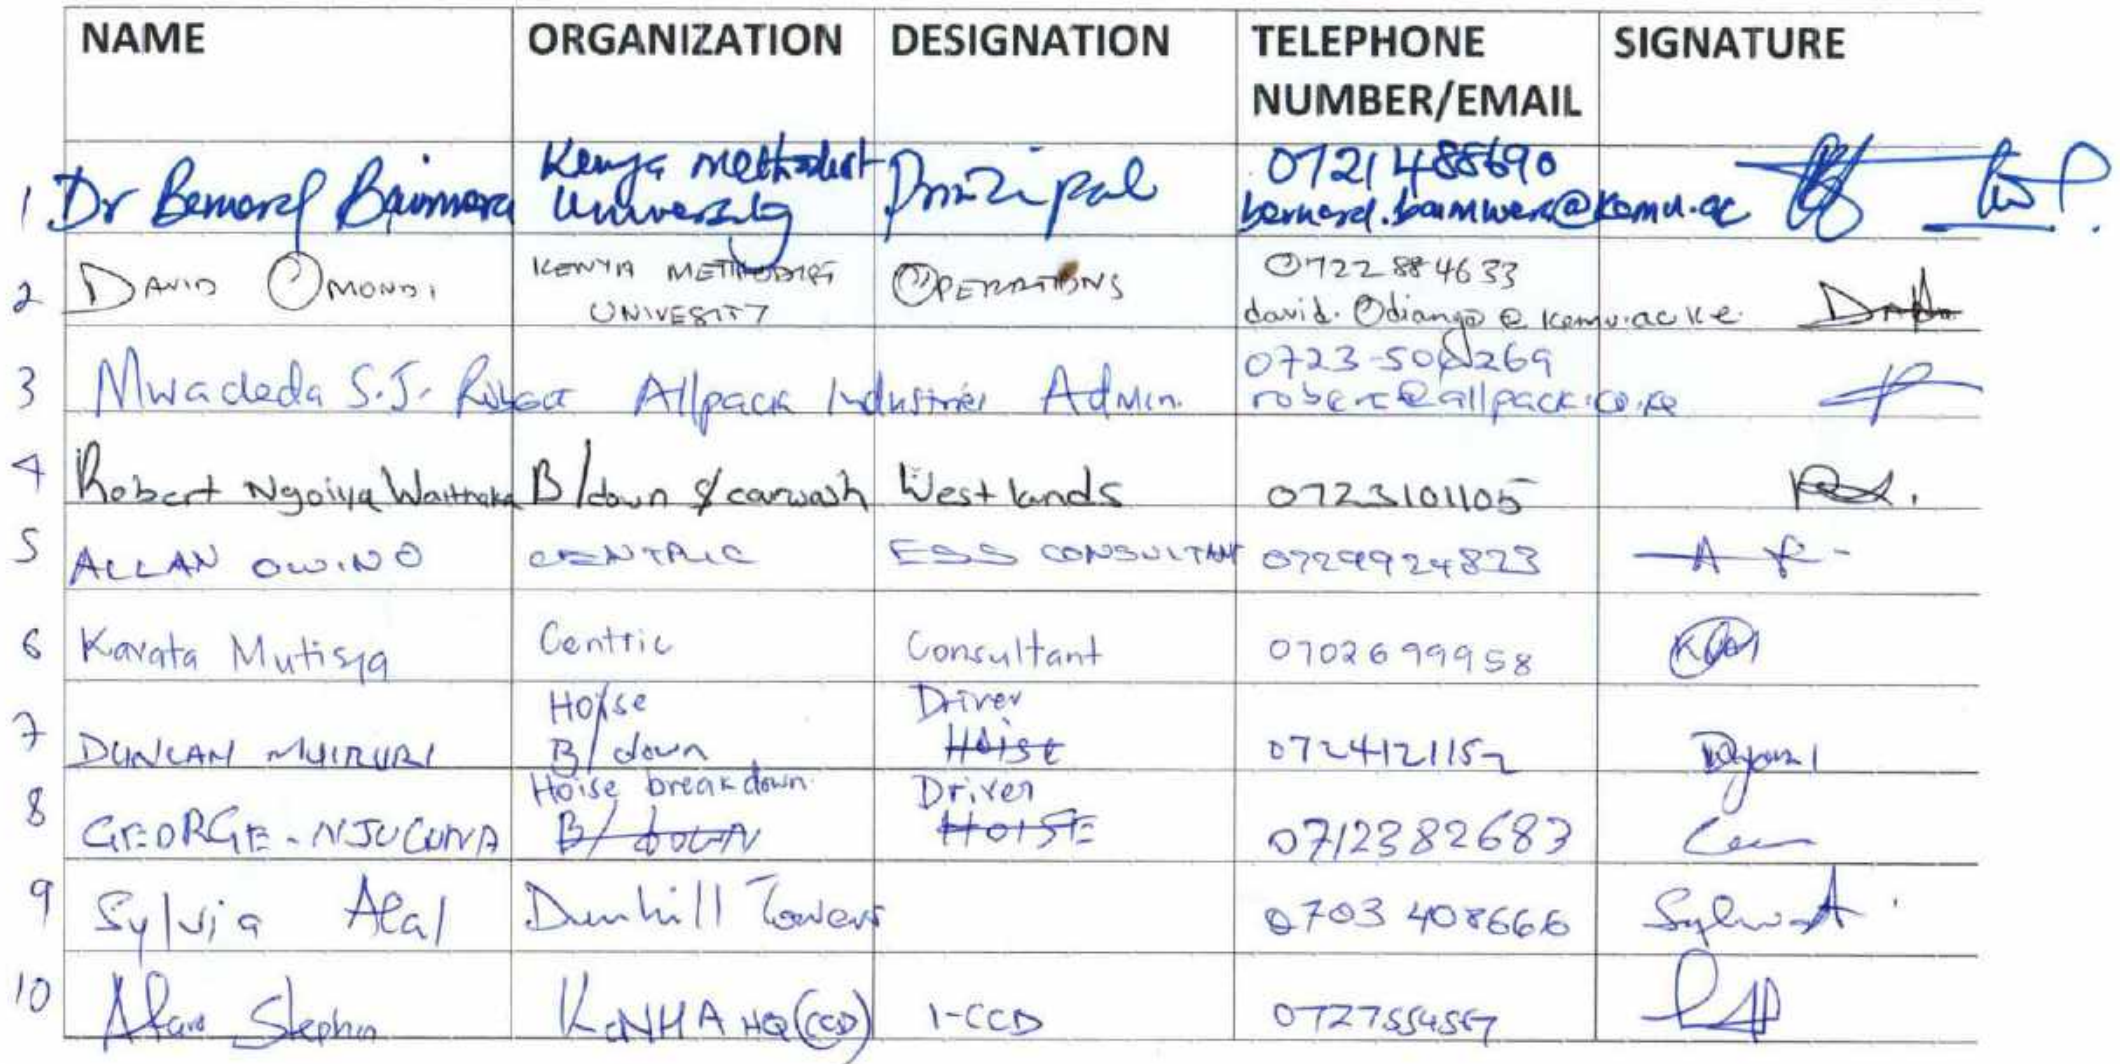 NAME ORGANIZATION DESIGNATION TELEPHONE NUMBER/EMAIL SIGNATURE
1 Dr Bernard Kenya Methodist University Principal 0721488690 @kemu.ac
2 DAVID OMONDI KENYA METHODIST UNIVESITY OPERATIONS 0722884633 david.Odiango@kemu.ac.ke
3 Mwadeda S.J. Robert Allpack Industries Admin. robert@allpack.co.ke
4 Robert Ngoiya Waithaka B/down & carwash Westlands 0723101105
5 ALLAN OWINO CENTRIC ESS CONSULTANT 0729924823
6 Kavata Mutisya Centric Consultant 0702699958
7 DUNCAN MUIRURI Hoise B/down Driver Hoist 0724121152
8 GEORGE-NJUGUNA Hoise breakdown B/down Driver HOISE 0712382683
9 Sylvia Alal Dunhill Towers 0703 408666
10 Stephen KeNHA HQ (CCD) 1-CCD